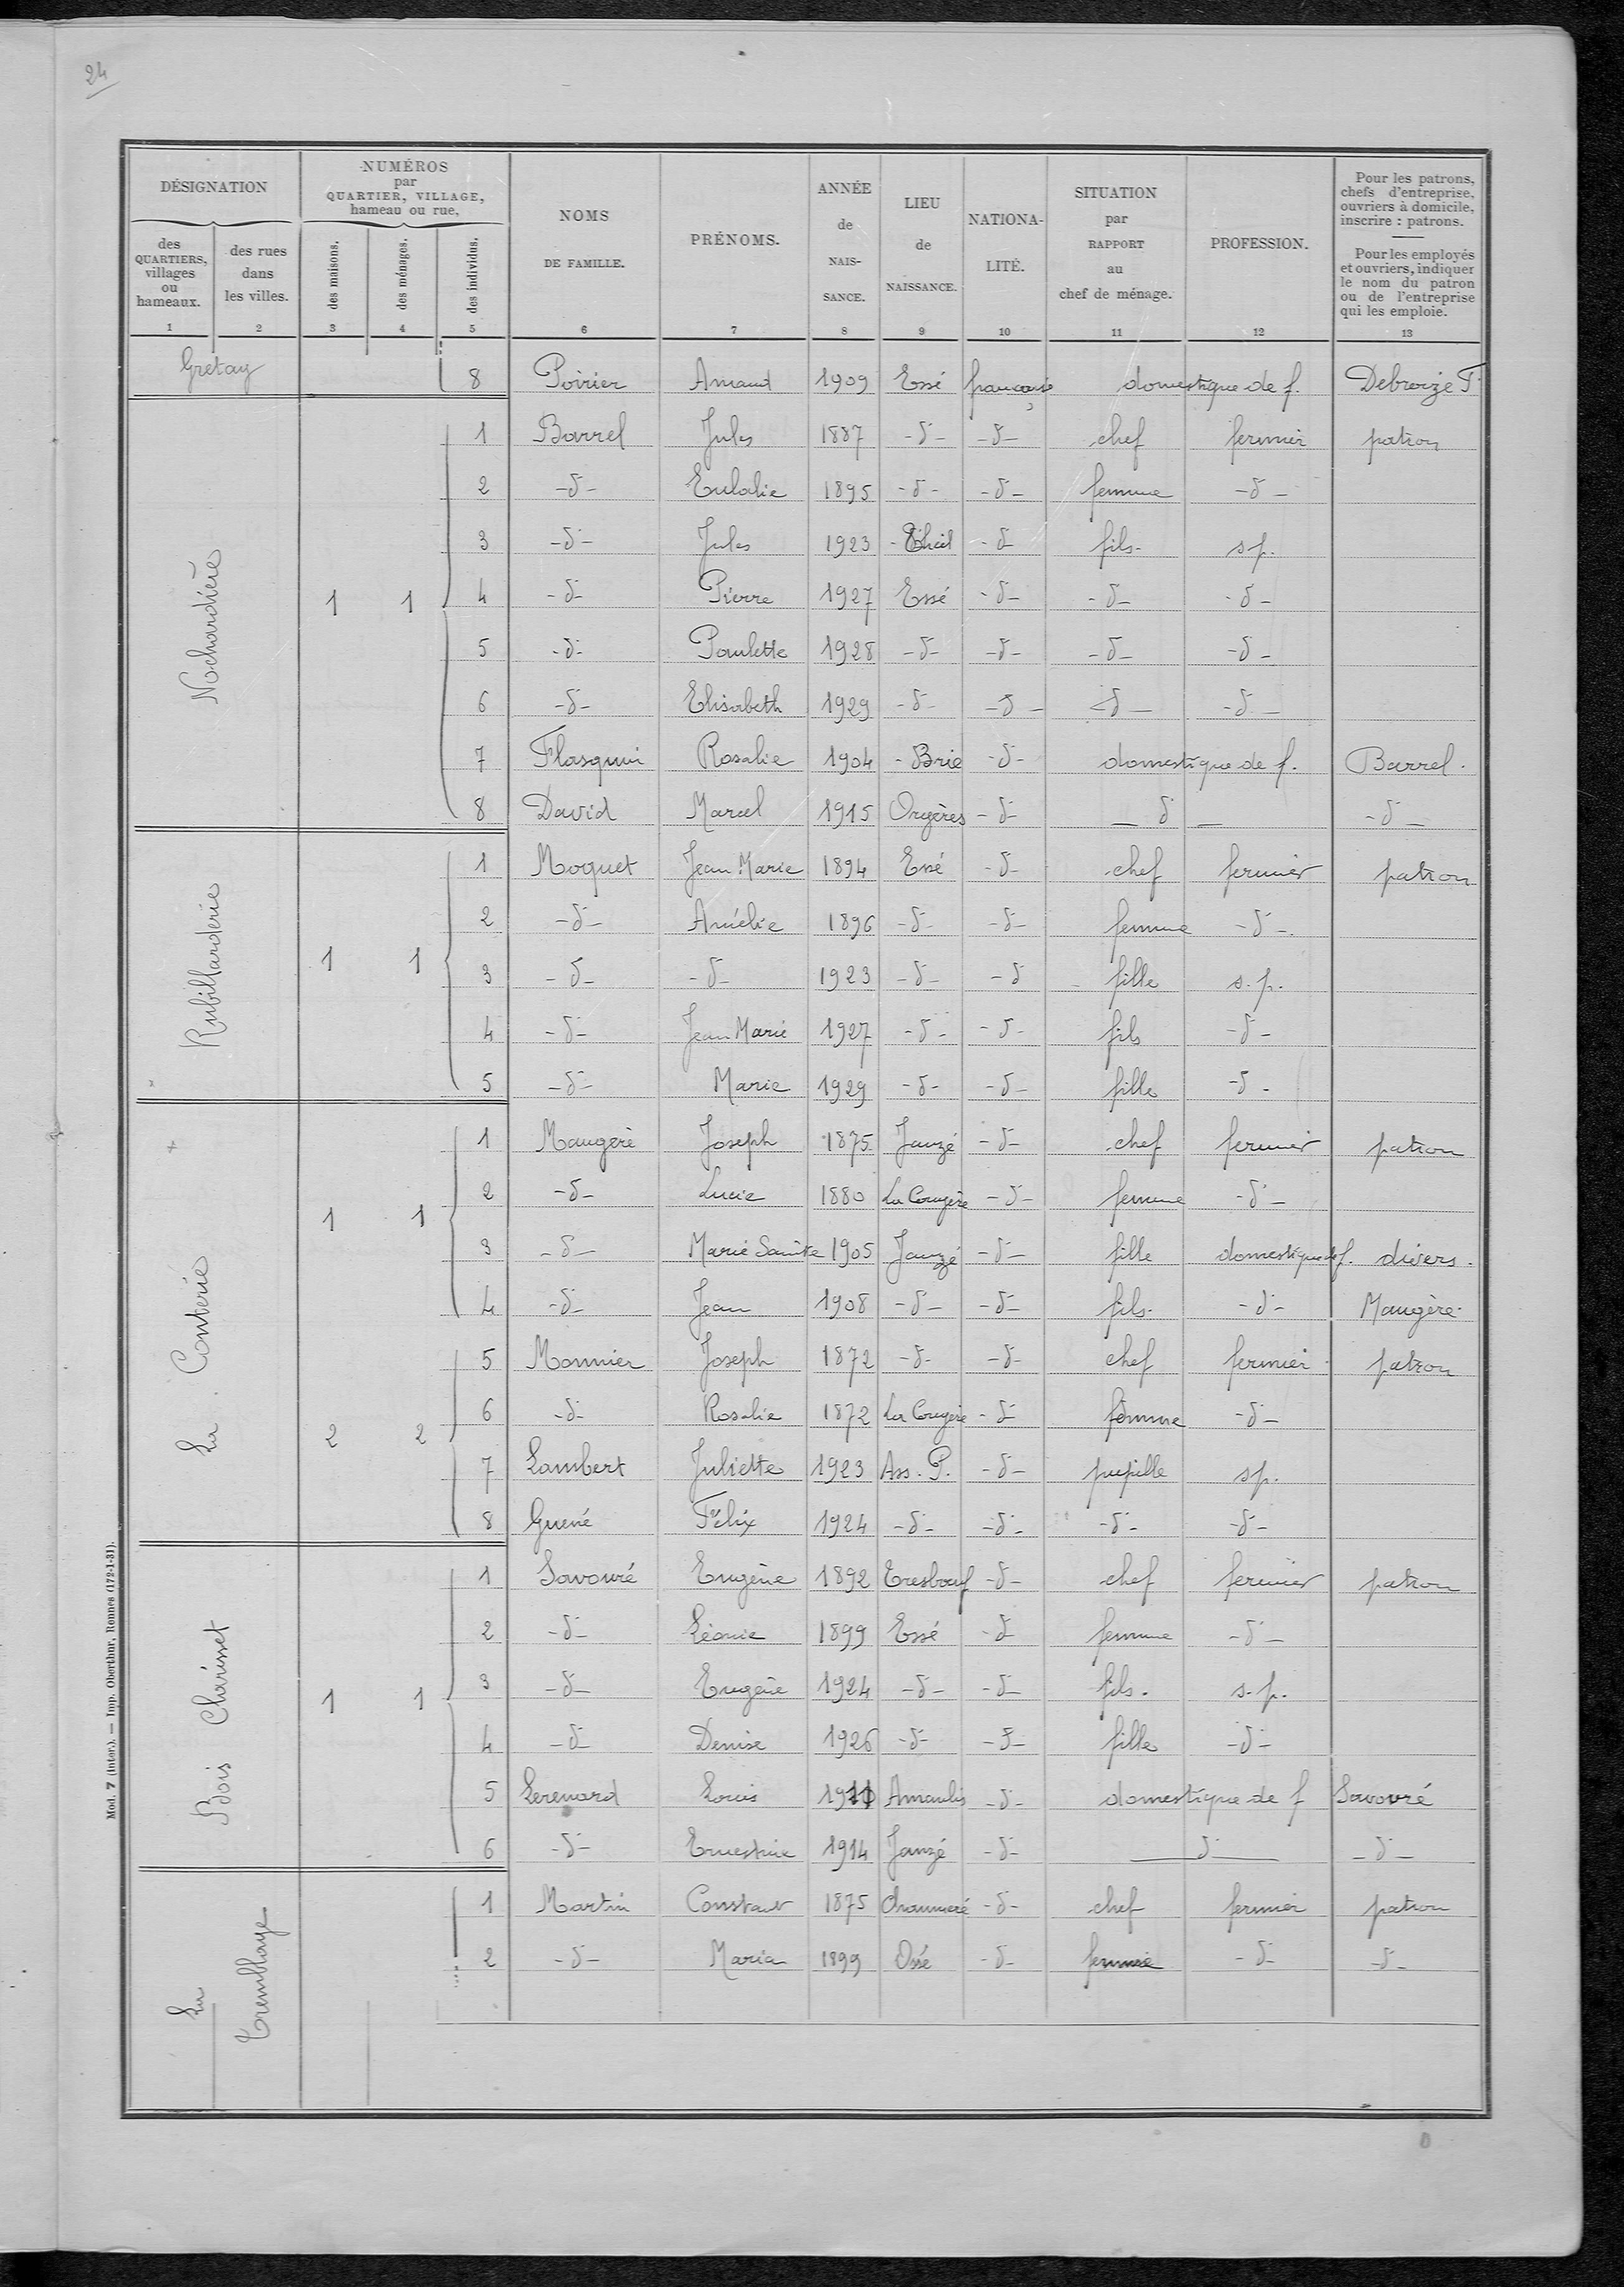 24
DÉSIGNATION
des QUARTIERS, villages ou hameaux.
des rues dans les villes.
NUMÉROS par QUARTIER, VILLAGE, hameau ou rue,
des maisons.
des ménages.
des individus.
NOMS DE FAMILLE.
PRÉNOMS.
ANNÉE de NAIS-SANCE.
LIEU de NAISSANCE.
NATIONA-LITÉ.
SITUATION par RAPPORT au chef de ménage.
PROFESSION.
Pour les patrons, chefs d'entreprise, ouvriers à domicile, inscrire : patrons.
Pour les employés et ouvriers, indiquer le nom du patron ou de l'entreprise qui les emploie.
1 2 3 4 5 6 7 8 9 10 11 12 13
Gretay 8 Poirier Amand 1909 Essé française domestique de f. Debroize F.
Nochardière 1 1
1 Barrel Jules 1887 -d- -d- chef fermier patron
2 -d- Eulalie 1895 -d- -d- femme -d-
3 -d- Jules 1923 Theil -d- fils s.p.
4 -d- Pierre 1927 Essé -d- -d- -d-
5 -d- Paulette 1928 -d- -d- -d- -d-
6 -d- Elisabeth 1929 -d- -d- -d- -d-
7 Flasquin Rosalie 1904 Brie -d- domestique de f. Barrel.
8 David Marcel 1915 Orgères -d- -d- -d-
Rubillarderie 1 1
1 Moquet Jean Marie 1894 Essé -d- chef fermier patron
2 -d- Amélie 1896 -d- -d- femme -d-
3 -d- -d- 1923 -d- -d fille s.p.
4 -d- Jean Marie 1927 -d- -d- fils -d-
5 -d- Marie 1929 -d- -d- fille -d-
La Conterie 1 1
1 Maugère Joseph 1875 Janzé -d- chef fermier patron
2 -d- Lucie 1880 La Couyère -d- femme -d-
3 -d- Marie Sainte 1905 Janzé -d- fille domestique de f. divers.
4 -d- Jean 1908 -d- -d- fils -d- Maugère
2 2
5 Monnier Joseph 1872 -d- -d- chef fermier patron
6 -d- Rosalie 1872 La Couyère -d- femme -d-
7 Lambert Juliette 1923 Ass. P. -d- pupille sp.
8 Guené Félix 1924 -d- -d- -d- -d-
Bois Charisset 1 1
1 Savouré Eugène 1892 Tresboeuf -d- chef fermier patron
2 -d- Léonie 1899 Essé -d femme -d-
3 -d- Eugène 1924 -d- -d- fils. s.p.
4 -d- Denise 1926 -d- -d- fille -d-
5 Lerenard Louis Amanlis -d- domestique de f Savouré
6 -d- Ernestine 1914 Janzé -d- -d- -d-
La Tremblaye
1 Martin Constant 1875 Chaumeré -d- chef fermier patron
2 -d- Maria 1899 Ossé -d- femme -d- -d-
Mod. 7 (Inter.). — Imp. Oberthur, Rennes (172-1-31).